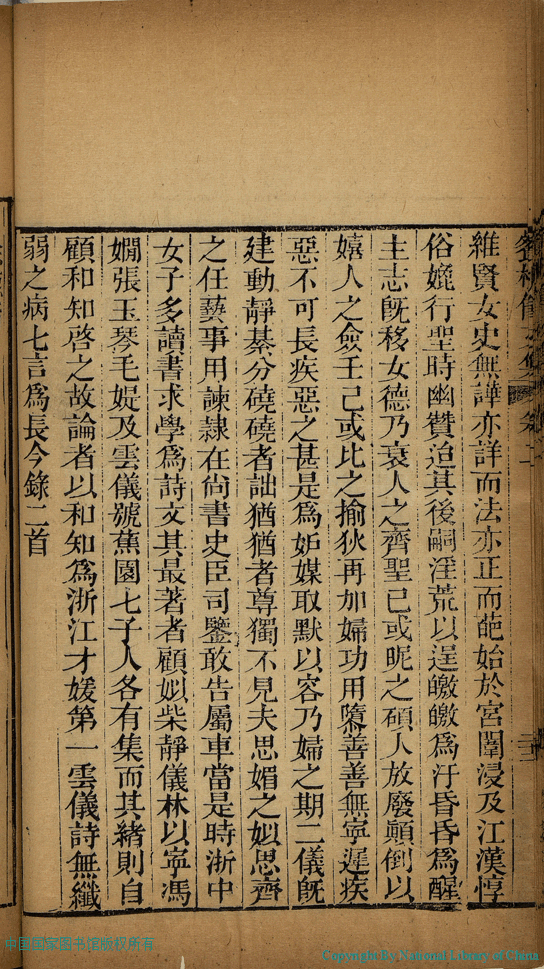 維賢女史無譁亦詳而法亦正而葩始於宮闈浸及江漢惇
俗嬎行聖時幽贊迨其後嗣淫荒以逞皦皦爲汙昏昏爲醒
主志旣移女德乃衰人之齊聖己或昵之碩人放廢顛倒以
嬉人之僉壬己或比之揄狄再加婦功用隳善善無寧遲疾
惡不可長疾惡之甚是爲妒媒取默以容乃婦之期二儀旣
建動靜綦分磽磽者詘猶猶者尊獨不見夫思媚之姒思齊
之任藝事用諫隸在尙書史臣司鑒敢告屬車當是時浙中
女子多讀書求學爲詩文其最著者顧姒柴靜儀林以寧馮
嫺張玉琴毛媞及雲儀號蕉園七子人各有集而其緒則自
顧和知啓之故論者以和知爲浙江才媛第一雲儀詩無纖
弱之病七言爲長今錄二首
中国国家图书馆版权所有
Copyright By National Library of China